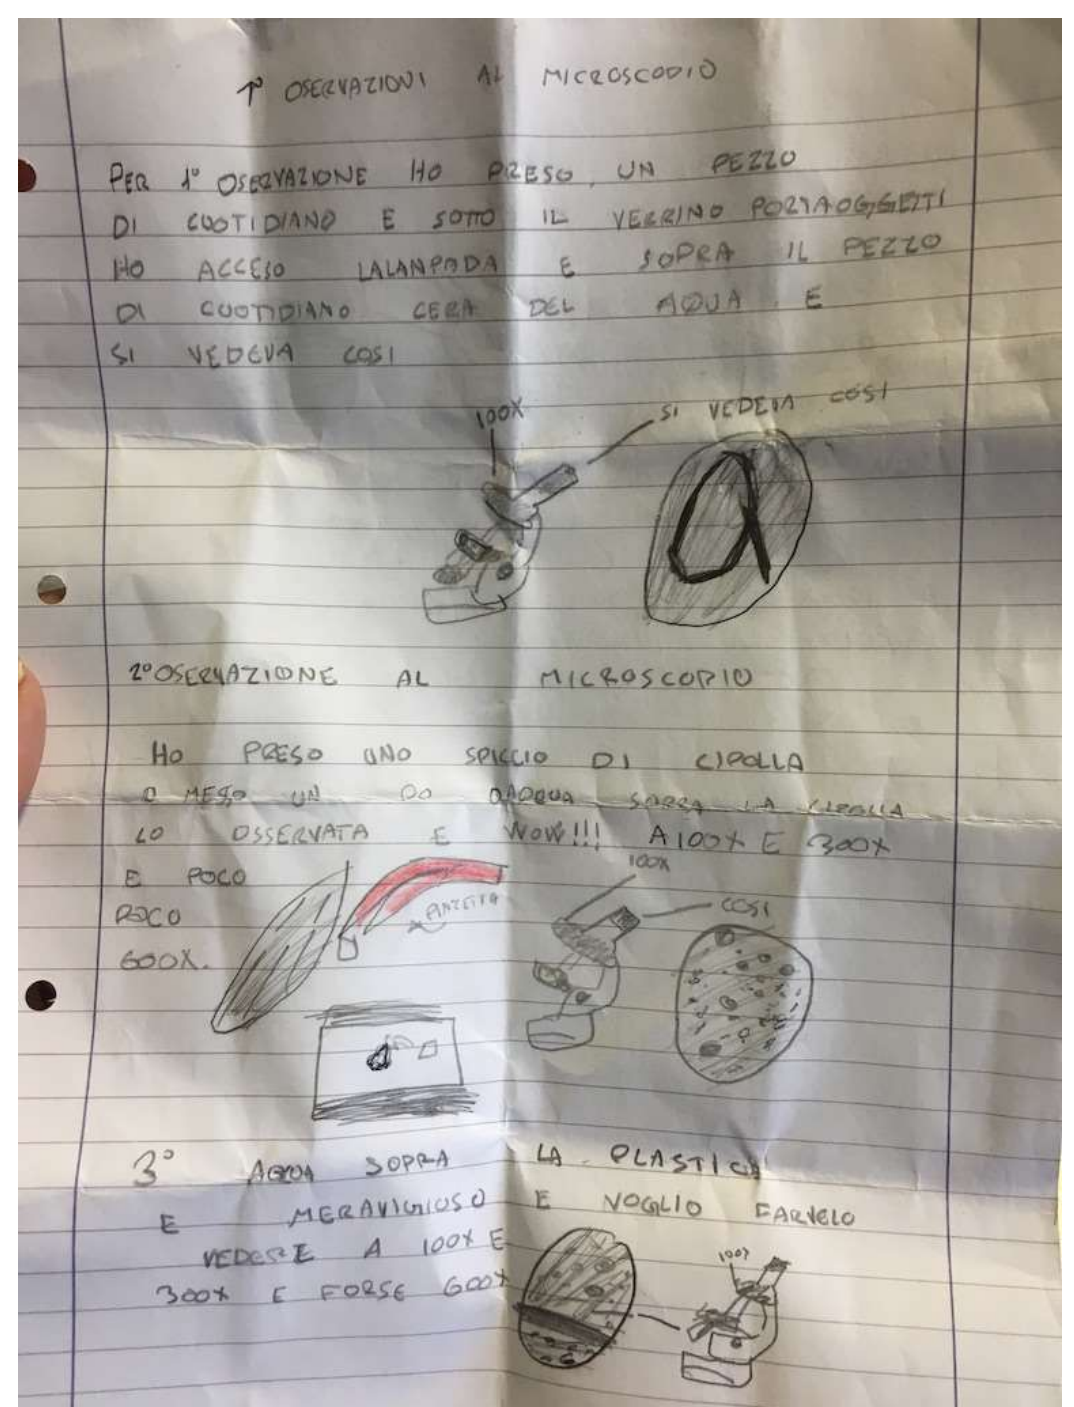 1° OSERVAZIONI AL MICROSCOPIO
PER 1° OSERVAZIONE HO PRESO UN PEZZO
DI CUOTIDIANO E SOTTO IL VERRINO PORTAOGGETTI
HO ACCESO LALANPADA E SOPRA IL PEZZO
DI CUOTIDIANO CERA DEL AQUA E
SI VEDEVA COSI
100X
SI VEDEVA COSI
a
2° OSERVAZIONE AL MICROSCOPIO
HO PRESO UNO SPICCIO DI CIPOLLA
O MESO UN PO DAQUA SOPRA LA CIPOLLA
LO OSSERVATA E WOW!!! A 100X E 300X
E POCO
POCO
600X.
PINZETTA
100X
COSI
3° AQUA SOPRA LA PLASTICA
E MERAVIGIOSO E VOGLIO FARVELO
VEDERE A 100X E
300X E FORSE 600X
100X